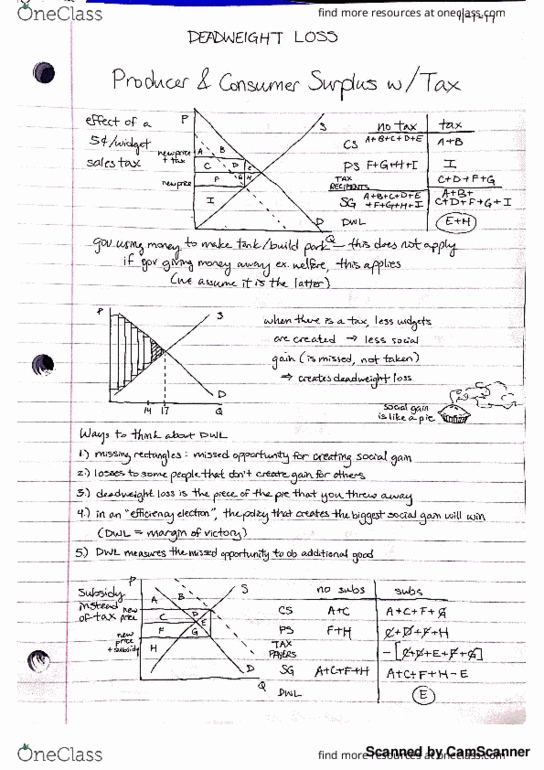 OneClass
find more resources at oneclass.com
DEADWEIGHT LOSS
Producer & Consumer Surplus w/Tax
effect of a
5¢/widget
sales tax
P
new price
+ tax
new price
A B
C D E
F G H
I
S
D
Q
no tax tax
CS A+B+C+D+E A+B
PS F+G+H+I I
TAX
RECIPIENTS C+D+F+G
SG A+B+C+D+E
+F+G+H+I A+B+
C+D+F+G+I
DWL E+H
gov using money to make tank/build park – this does not apply
if gov giving money away ex. welfare, this applies
(we assume it is the latter)
P
S
D
14 17 Q
when there is a tax, less widgets
are created ⇒ less social
gain (is missed, not taken)
⇒ creates deadweight loss
social gain
is like a pie
Ways to think about DWL
1.) missing rectangles: missed opportunity for creating social gain
2.) losses to some people that don't create gain for others
3.) deadweight loss is the piece of the pie that you threw away
4.) in an "efficiency election", the policy that creates the biggest social gain will win
(DWL = margin of victory)
5.) DWL measures the missed opportunity to do additional good
Subsidy
instead
of tax
P
new
price
new
price
+ subsidy
A B
C D E
F G
H
S
D
Q
no subs subs
CS A+C A+C+F+G
PS F+H C+D+F+H
TAX
PAYERS -[C+D+E+F+G]
SG A+C+F+H A+C+F+H-E
DWL E
OneClass
find more resources at oneclass.com
Scanned by CamScanner